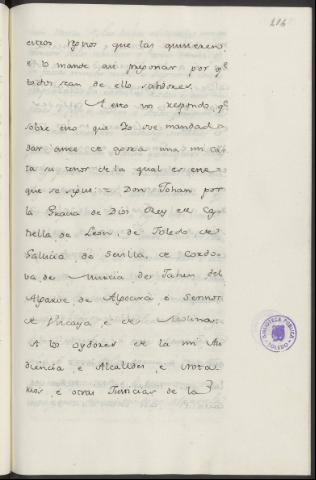 216
estos Reynos, que las quisieren,
e lo mande ansi pregonar por q.e
todos sean de ello sabdores.
A esto vos respondo, q.e
sobre esto que Yo ove mandad
dar ove una mi car
ta su tenor de la qual es este
que se sigue: = Don Johan por
la Gracia de Dios Rey de Cas
tiella de Leon, de Toledo de
Galicia de Sevilla, de Cordo
ba de Murcia de Jahen del
Algarve de Algecira, é Sennor
de Vizcaya, é de Molina.
A los oydores de la mi Au
diencia, e Alcalldes, e Nota
rios, e otras Justicias de la
BIBLIOTECA PUBLICA
TOLEDO